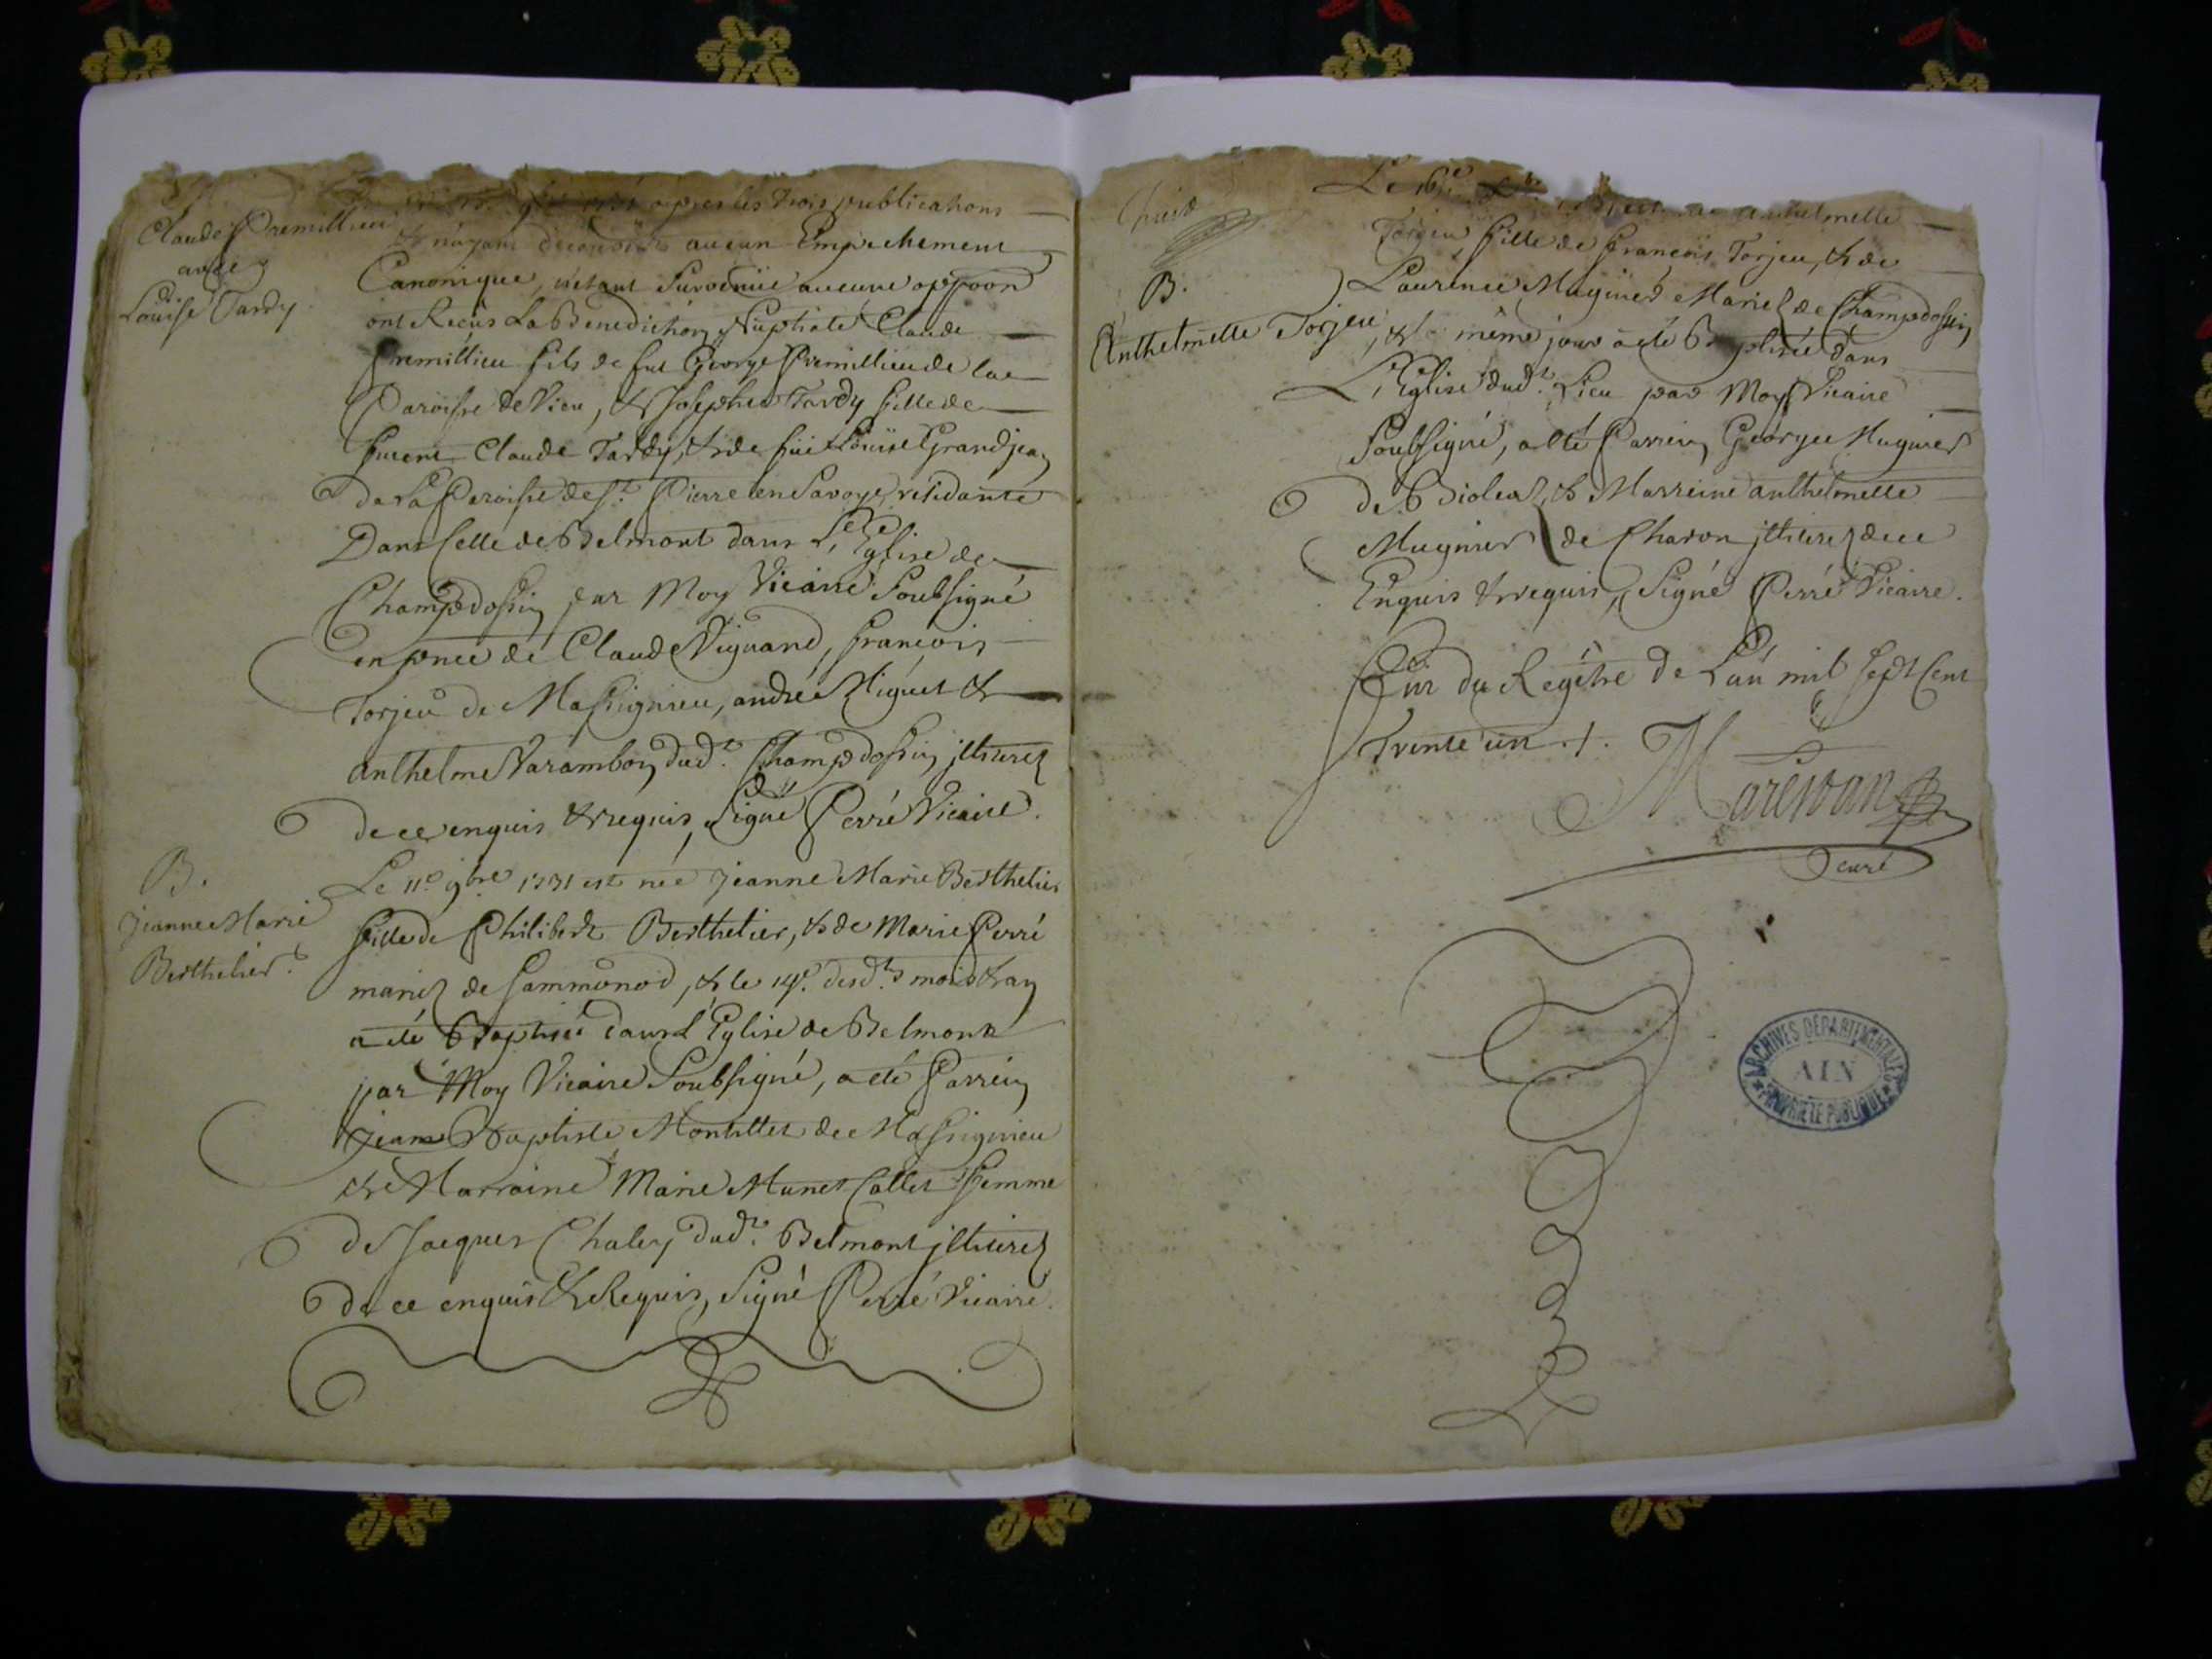 Claude Premillieu
avec
Louise Tardy
1731 apres les trois publications
& n'ayant decouvert aucun Empechement
Canonique, n'etant survenüe aucune oppoon
ont Reçus La Benediction Nuptiale Claude
Premillieu fils de fut George Premillieu de la
Paroisse de Vieu, & Josephe Tardy fille de
furent Claude Tardy, & de füe Louise Grandjean
de La Paroisse de St. Pierre en Savoye, residante
Dans Celle de Belmont dans L'Eglise de
Champdossin par Moy Vicaire Soubsigné
en pnce de Claude Vignand, françois
Torjeu de Massignieu, andré Miguet &
anthelme Varambon dudt. Champdossin jlliterez
de ce enquis & requis, Signé Perré Vicaire.
B.
Jeanne Marie
Berthelier.
Le 11e. 9bre 1731 est née Jeanne Marie Berthelier
fille de Philibert Berthelier, & de Marie Perré
mariez de Sammonod, & le 14e. desdts. mois & an
a été Baptisée dans L'Eglise de Belmont
par Moy Vicaire Soubsigné, a été Parrein
Jean Baptiste Montillet de Massignieu
& Marraine Marie Munet Callet femme
de Jacques Chaley dudt. Belmont jlliterez
de ce enquis & Requis, Signé Perré Vicaire.
Le 16e
est née anthelmette
Torjeu, fille de François Torjeu, & de
B.
Anthelmette Torjeu
Laurence Mugnier Mariez de Champdossin
& le même jour a été Baptisée dans
L'Eglise dudt. Lieu par Moy Vicaire
Soubsigné, a été Parrein George Mugnier
de Bioleaz, & Marreine anthelmette
Mugnier de Charon jlliterez de ce
Enquis & requis, Signé Perré Vicaire.
Fin du Regitre de L'an mil Sept Cent
Trente un ./.
curé
ARCHIVES DÉPARTEMENTALES
AIN
PROPRIÉTÉ PUBLIQUE